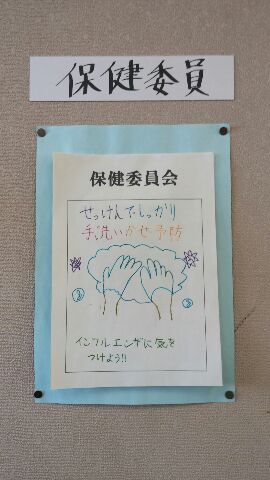 保健委員
保健委員会
せっけんでしっかり
手洗いかぜ予防
インフルエンザに気を
つけよう!!